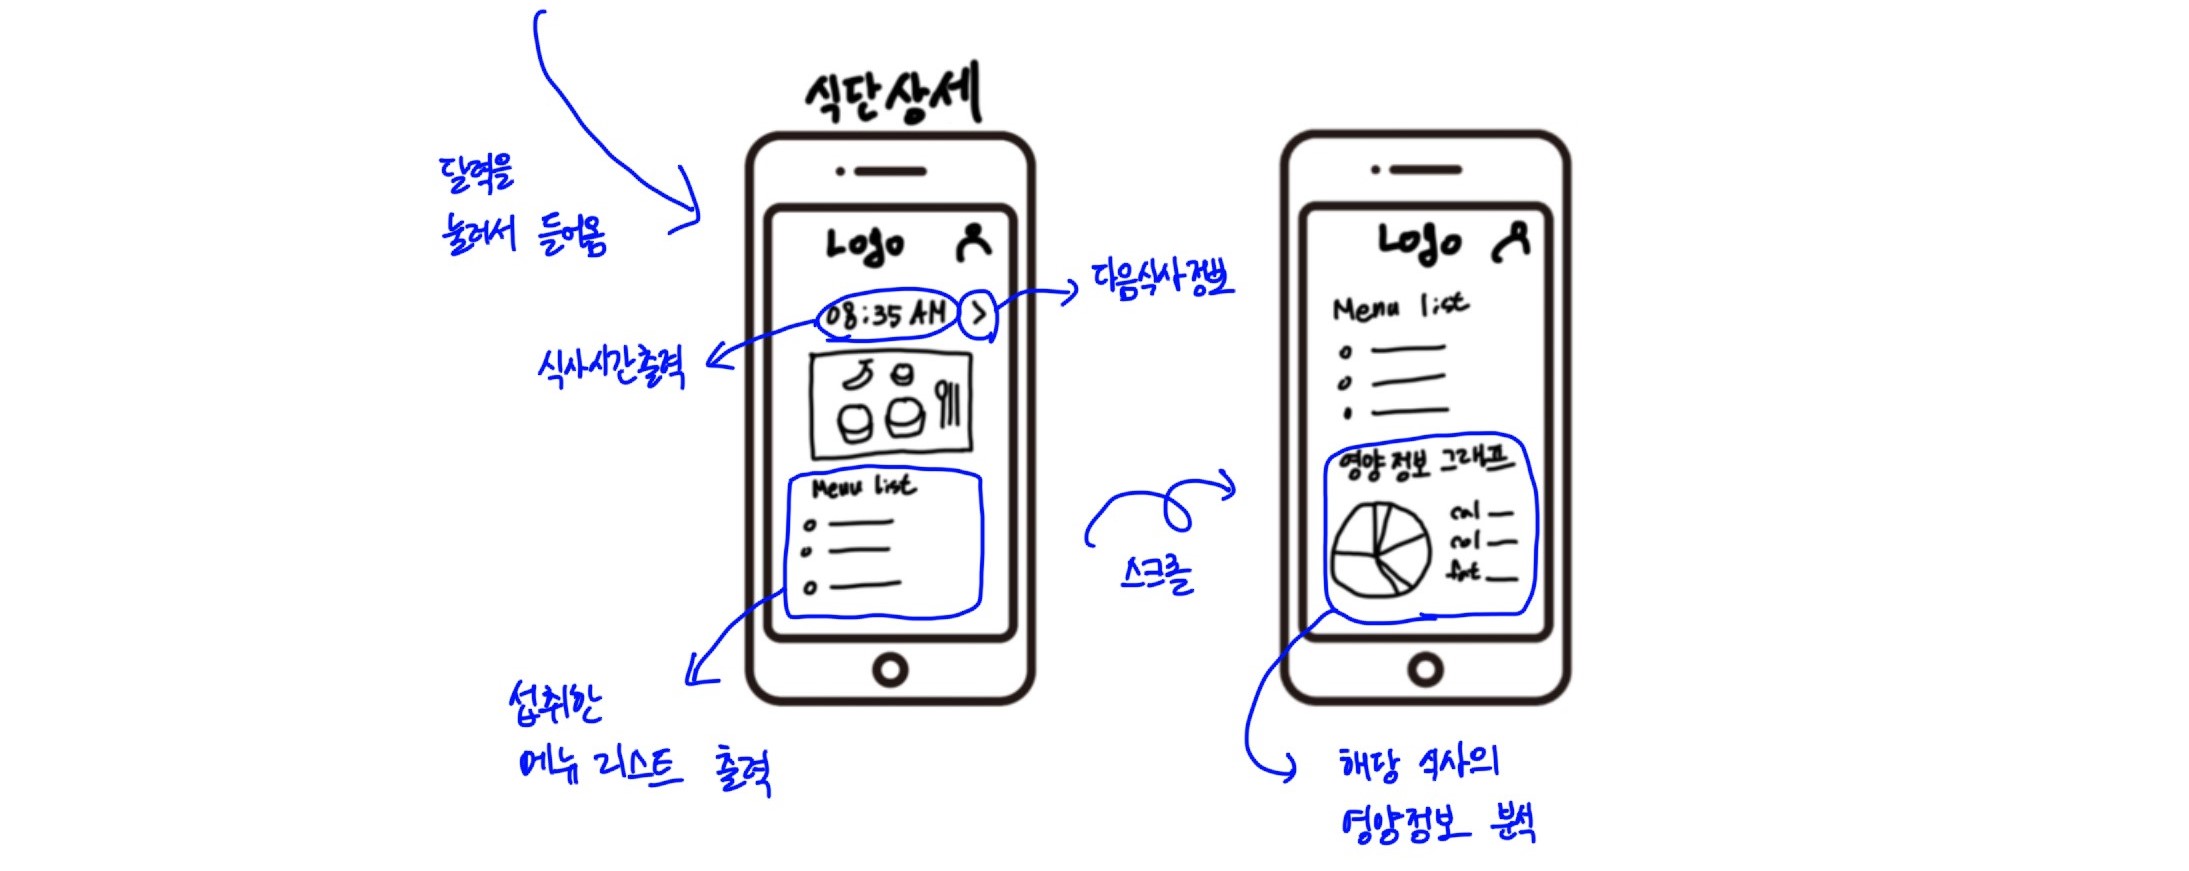 식단상세
달력을
눌러서 들어옴
Logo
08:35 AM >
다음식사정보
식사시간출력
Menu list
섭취한
메뉴 리스트 출력
스크롤
Logo
Menu list
영양 정보 그래프
cal
cal
fat
해당 식사의
영양정보 분석